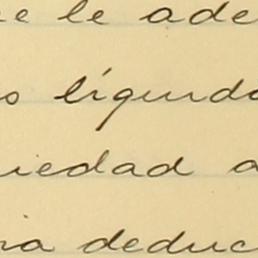 e le ade
o líquido
iedad a
ia deduc